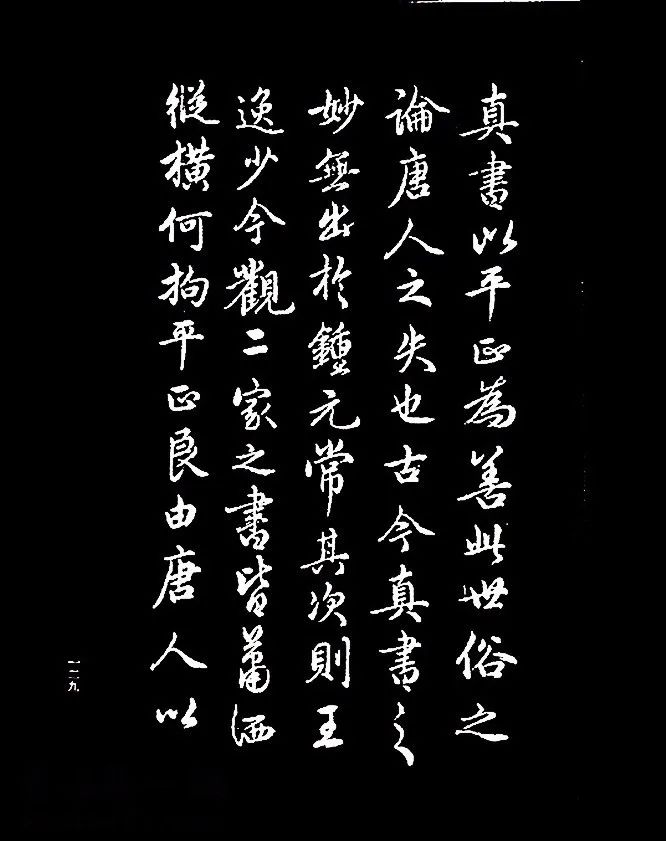 真書以平正為善此世俗之
論唐人之失也古今真書之
妙無出於鍾元常其次則王
逸少今觀二家之書皆蕭洒
縱橫何拘平正良由唐人以
一二九